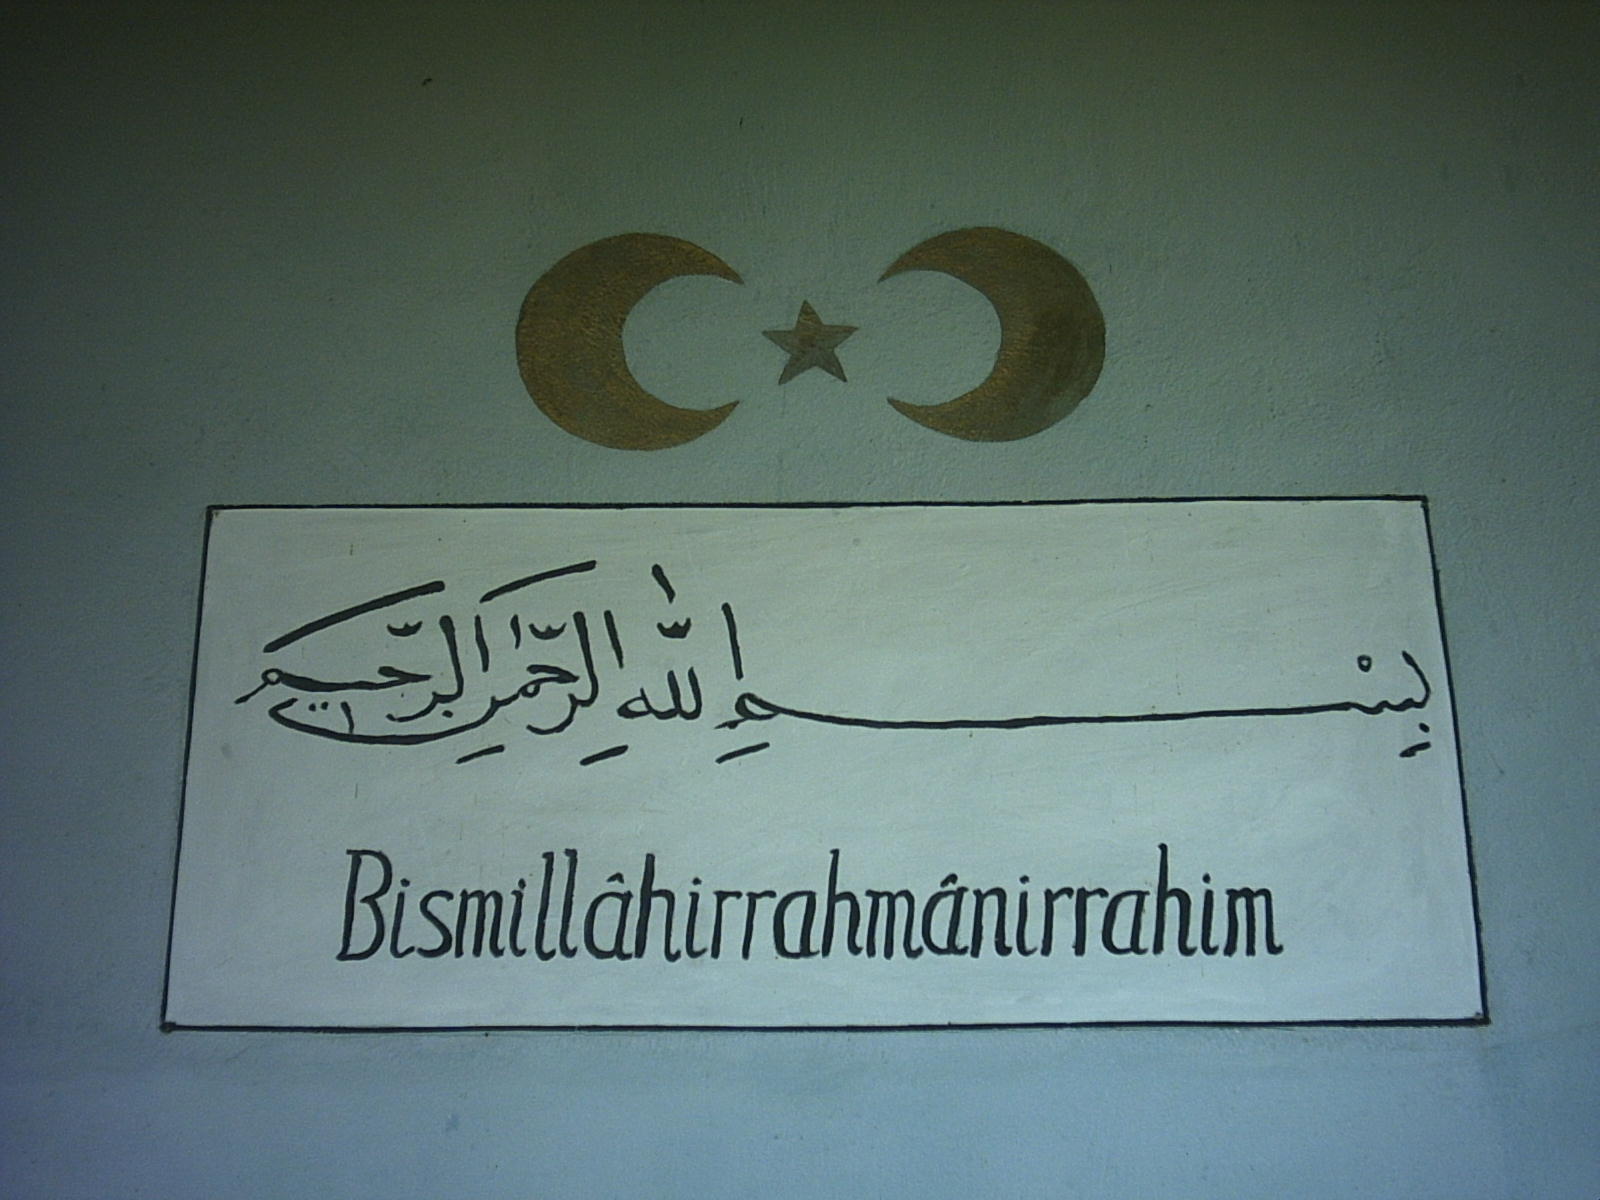 بِسْمِ اللّٰهِ الرَّحْمٰنِ الرَّحيمِ
Bismillâhirrahmânirrahim